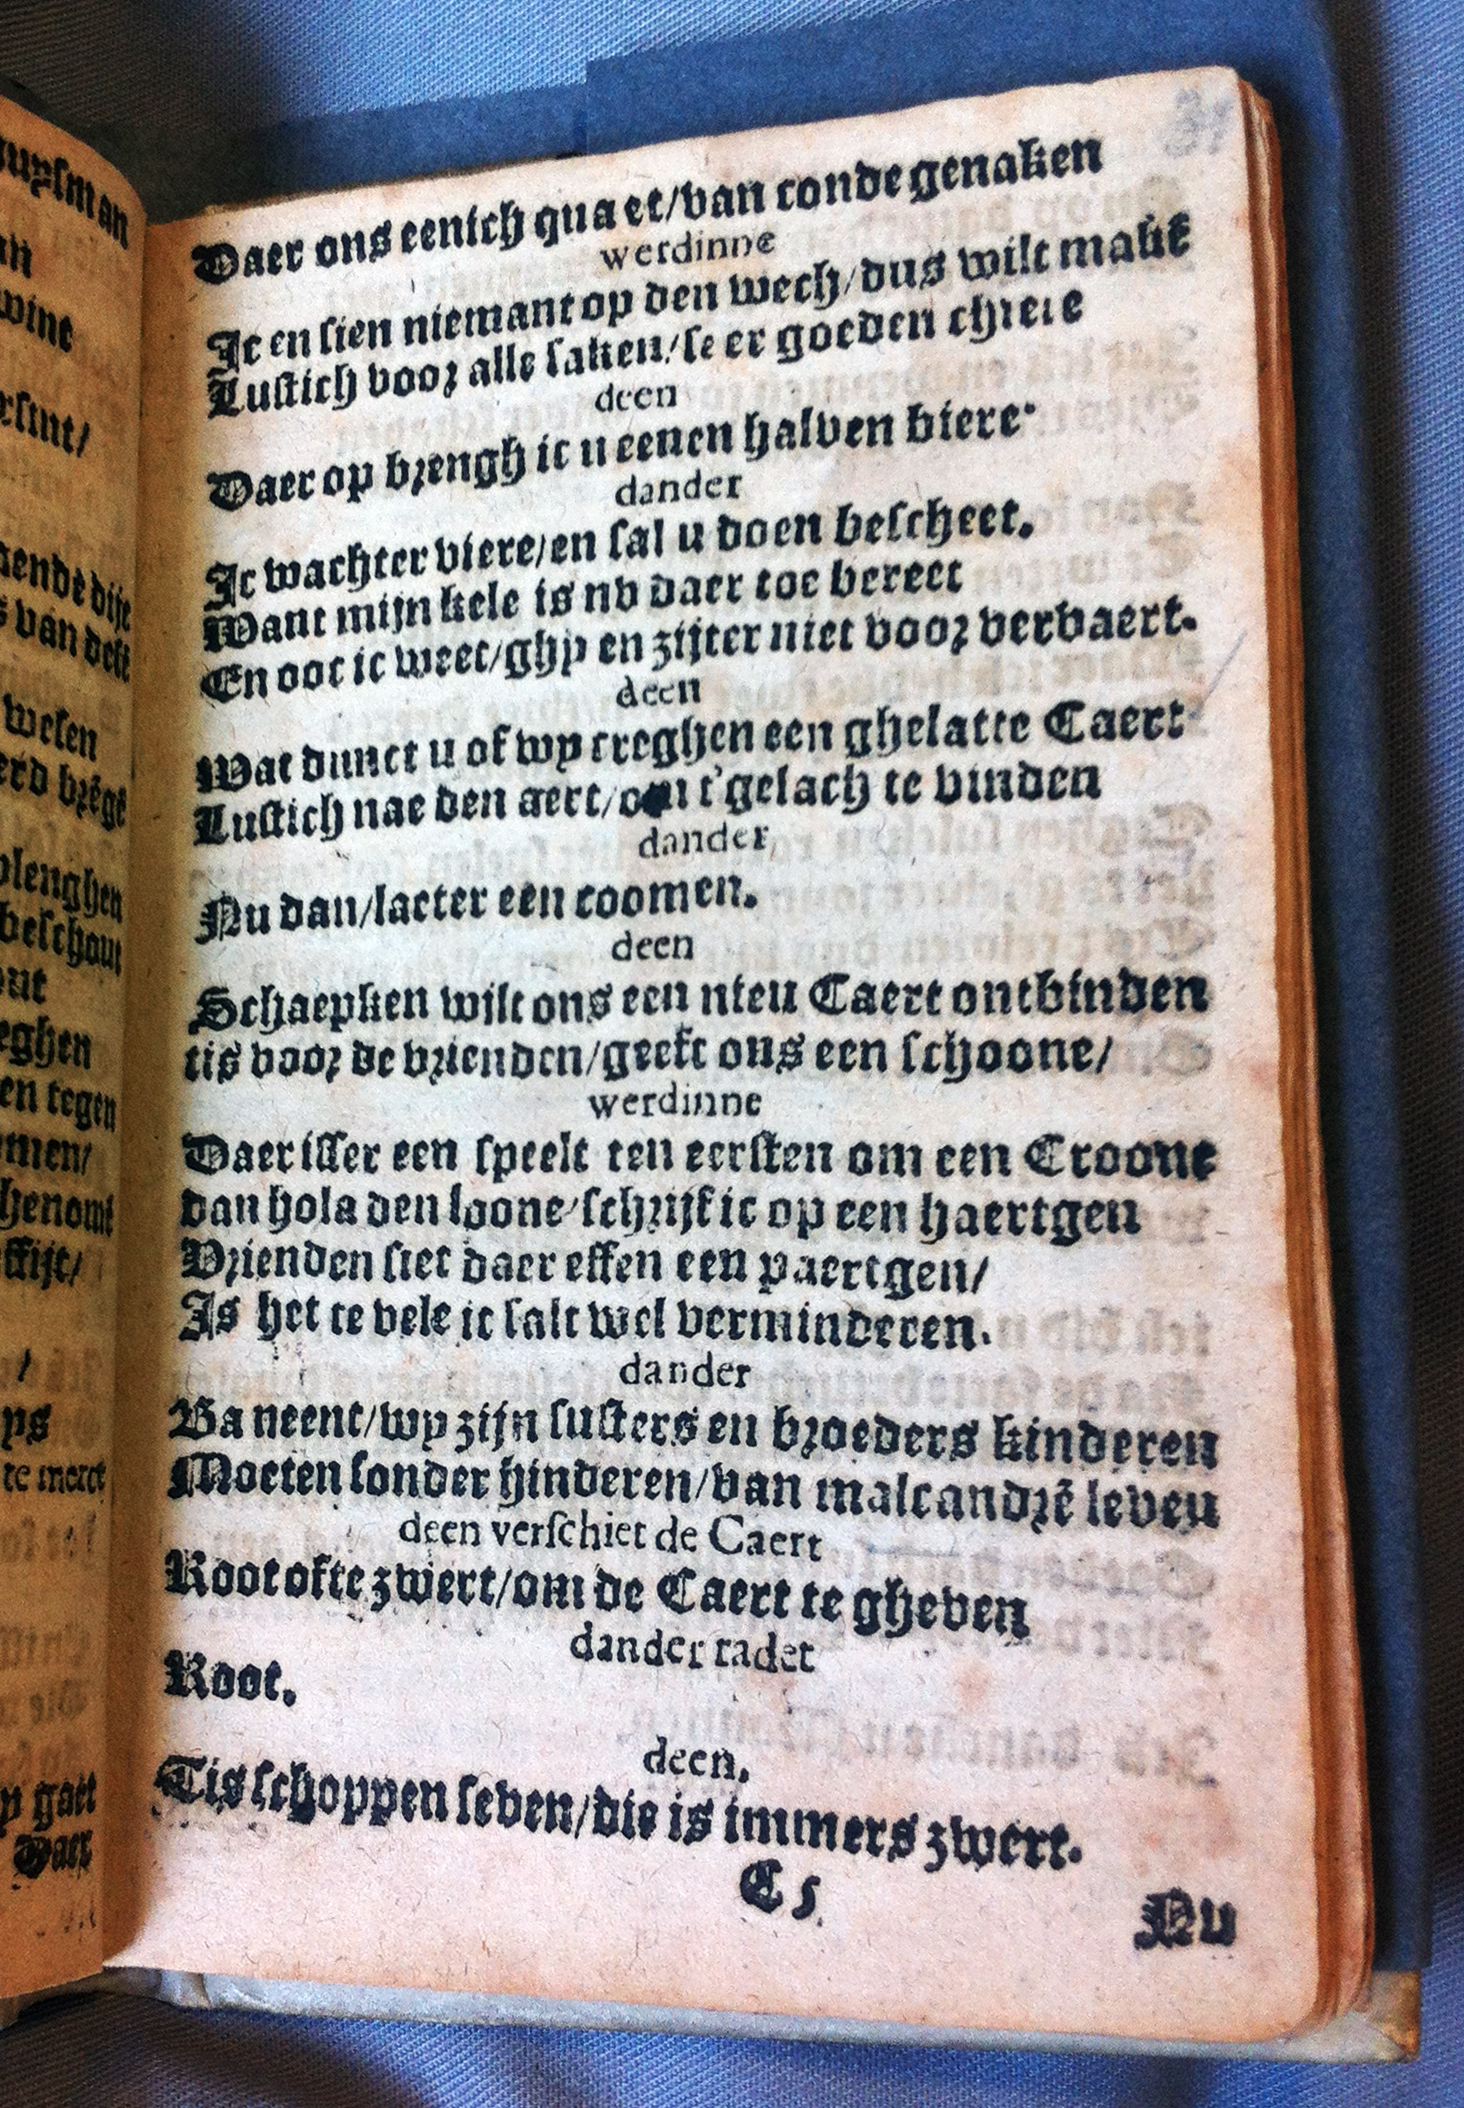 Daer ons eenich quaet/van conde genaken
werdinne
Ic en sien niemant op den wech/dus wilt makē
Lustich voor alle saken/seer goeden chiere
deen
Daer op brengh ic u eenen halven biere.
dander
Ic wachter viere/en sal u doen bescheet.
Want mijn kele is nv daer toe bereet
En ooc ic weet/ghy en zijter niet voor vervaert.
deen
Wat dunct u of wy creghen een ghelatte Caert
Lustich nae den aert/om t'gelach te vinden
dander
Nu dan/laeter een coomen.
deen
Schaepken wilt ons een nieu Caert ontbinden
tis voor de vrienden/geeft ons een schoone/
werdinne
Daer isser een speelt ten eersten om een Croone
van hola den loone/schrijf ic op een haertgen
Vrienden siet daer effen een paertgen/
Is het te vele ic salt wel verminderen.
dander
Ba neent/wy zijn susters en broeders kinderen
Moeten sonder hinderen/van malcandrē leven
deen verschiet de Caert
Root ofte zwert/om de Caert te gheven
dander radet
Root.
deen.
Tis schoppen seven/die is immers zwert.
C 5
Nu